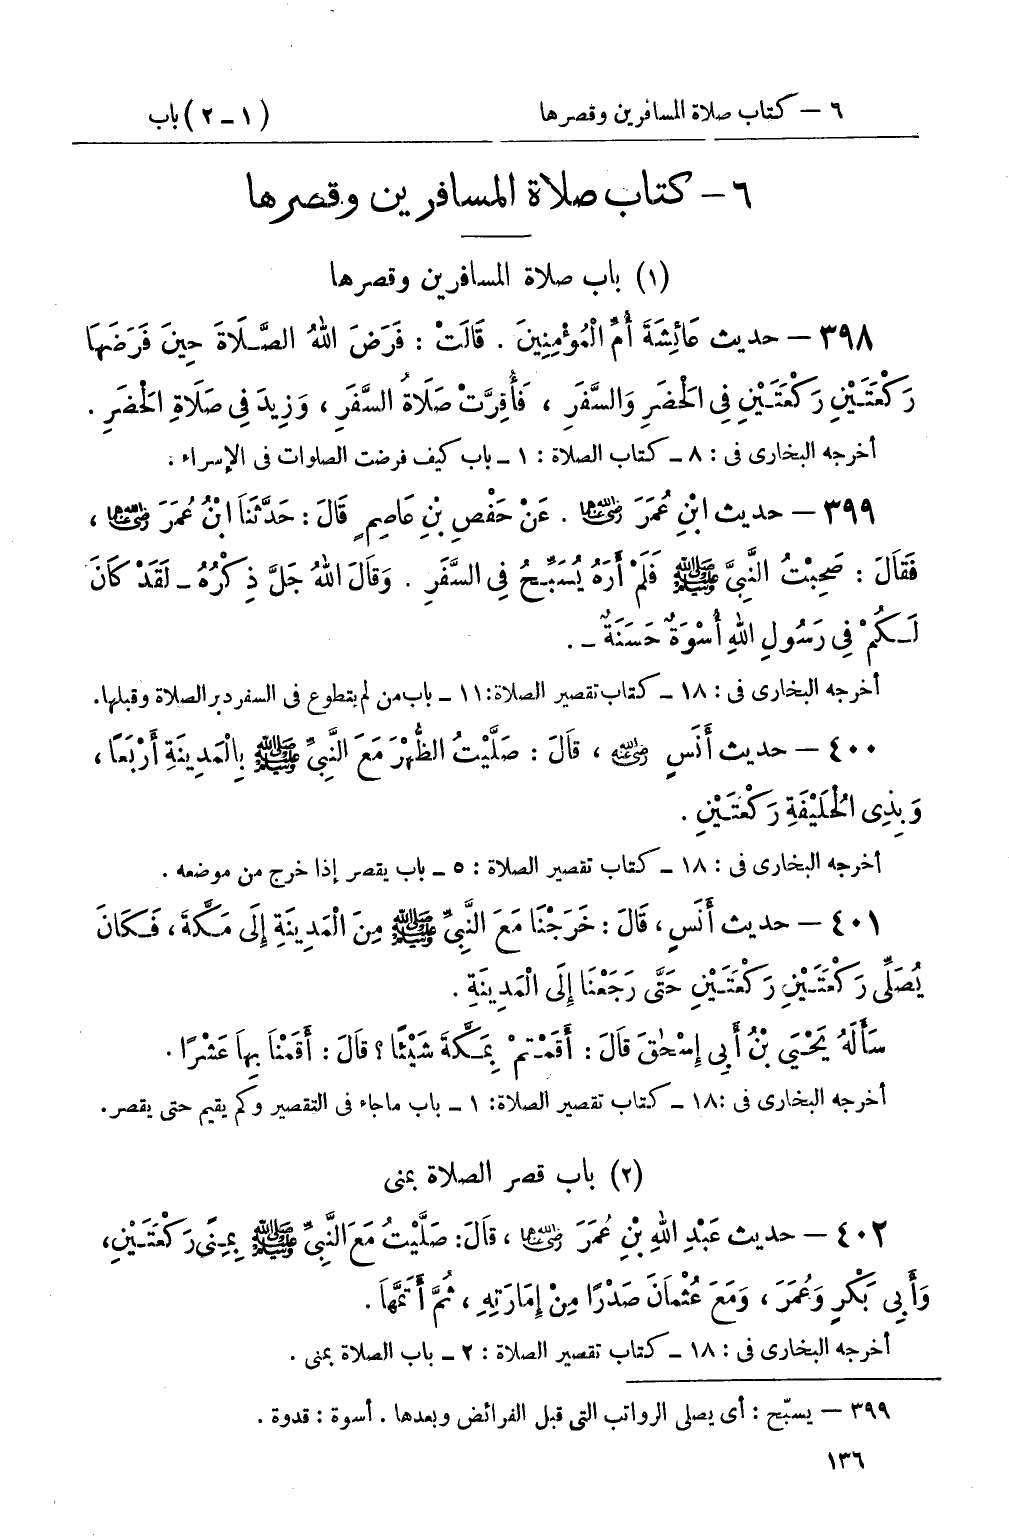 ٦ – كتاب صلاة المسافرين وقصرها (١ – ٢) باب
٦ – كتاب صلاة المسافرين وقصرها
(١) باب صلاة المسافرين وقصرها
٣٩٨ – حديث عَائِشَةَ أُمِّ الْمُؤْمِنِينَ . قَالَتْ : فَرَضَ اللهُ الصَّلَاةَ حِينَ فَرَضَهَا
رَكْعَتَيْنِ رَكْعَتَيْنِ فِي الْحَضَرِ وَالسَّفَرِ ، فَأُقِرَّتْ صَلَاةُ السَّفَرِ ، وَزِيدَ فِي صَلَاةِ الْحَضَرِ .
أخرجه البخارى فى : ٨ – كتاب الصلاة : ١ – باب كيف فرضت الصلوات فى الإسراء .
٣٩٩ – حديث ابْنِ عُمَرَ رضي الله عنهما . عَنْ حَفْصِ بْنِ عَاصِمٍ قَالَ : حَدَّثَنَا ابْنُ عُمَرَ رضي الله عنهما ،
فَقَالَ : صَحِبْتُ النَّبِيَّ ﷺ فَلَمْ أَرَهُ يُسَبِّحُ فِي السَّفَرِ . وَقَالَ اللهُ جَلَّ ذِكْرُهُ – لَقَدْ كَانَ
لَكُمْ فِي رَسُولِ اللهِ أُسْوَةٌ حَسَنَةٌ – .
أخرجه البخارى فى : ١٨ – كتاب تقصير الصلاة: ١١ – باب من لم يتطوع فى السفر دبر الصلاة وقبلها.
٤٠٠ – حديث أَنَسٍ رضي الله عنه ، قَالَ : صَلَّيْتُ الظُّهْرَ مَعَ النَّبِيِّ ﷺ بِالْمَدِينَةِ أَرْبَعًا ،
وَبِذِى الْحُلَيْفَةِ رَكْعَتَيْنِ .
أخرجه البخارى فى : ١٨ – كتاب تقصير الصلاة : ٥ – باب يقصر إذا خرج من موضعه .
٤٠١ – حديث أَنَسٍ ، قَالَ : خَرَجْنَا مَعَ النَّبِيِّ ﷺ مِنَ الْمَدِينَةِ إِلَى مَكَّةَ ، فَكَانَ
يُصَلِّي رَكْعَتَيْنِ رَكْعَتَيْنِ حَتَّى رَجَعْنَا إِلَى الْمَدِينَةِ .
سَأَلَهُ يَحْيَى بْنُ أَبِي إِسْحٰقَ قَالَ : أَقَمْتُمْ بِمَكَّةَ شَيْئًا ؟ قَالَ : أَقَمْنَا بِهَا عَشْرًا .
أخرجه البخارى فى :١٨ – كتاب تقصير الصلاة: ١ – باب ماجاء فى التقصير وكم يقيم حتى يقصر.
(٢) باب قصر الصلاة بمنى
٤٠٢ – حديث عَبْدِ اللهِ بْنِ عُمَرَ رضي الله عنهما ، قَالَ: صَلَّيْتُ مَعَ النَّبِيِّ ﷺ بِمِنًى رَكْعَتَيْنِ،
وَأَبِي بَكْرٍ وَعُمَرَ ، وَمَعَ عُثْمَانَ صَدْرًا مِنْ إِمَارَتِهِ ، ثُمَّ أَتَمَّهَا .
أخرجه البخارى فى : ١٨ – كتاب تقصير الصلاة : ٢ – باب الصلاة بمنى .
٣٩٩ – يسبّح : أى يصلى الرواتب التى قبل الفرائض وبعدها . أسوة : قدوة .
١٣٦